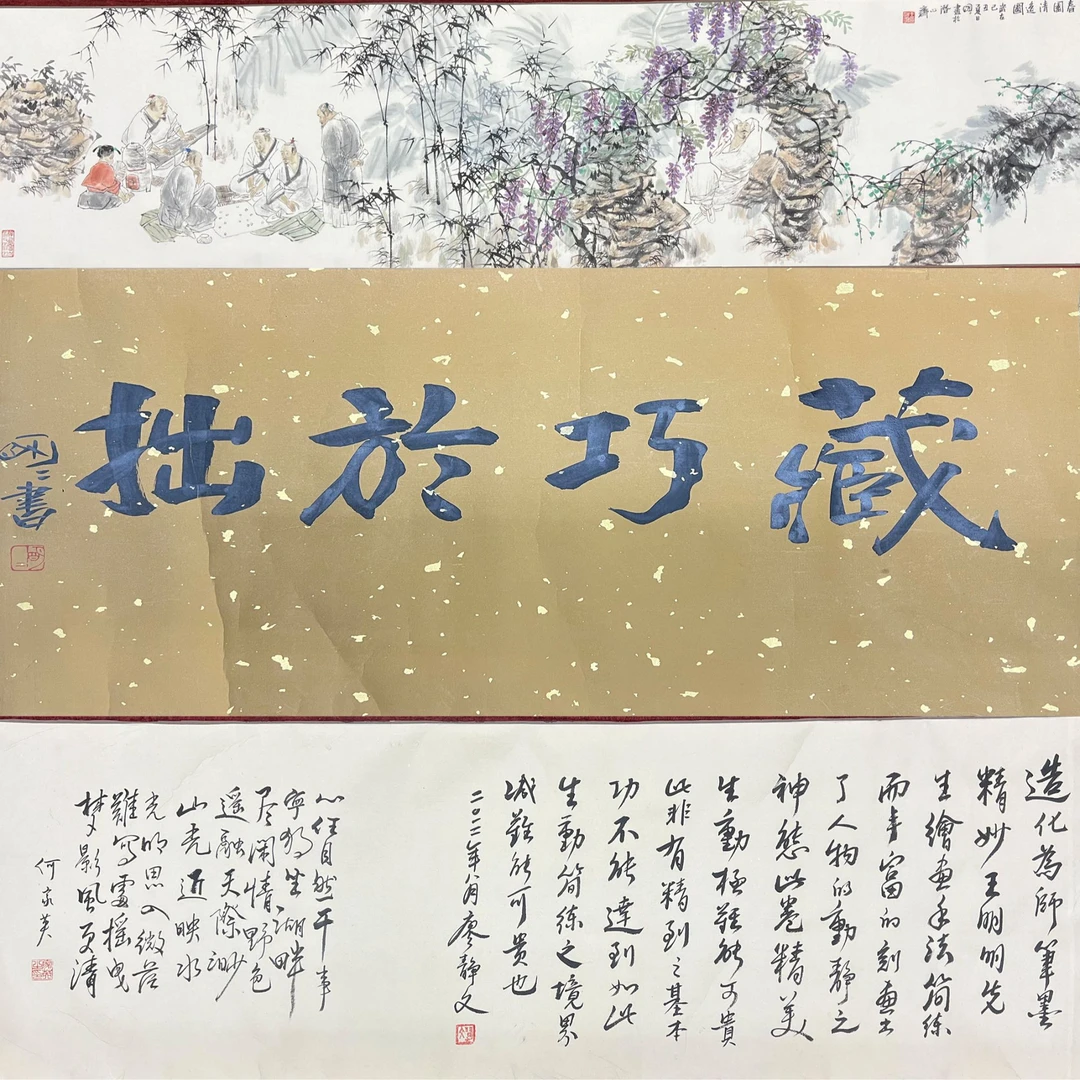 藏巧於拙
書
造化為師筆墨
精妙王明明先
生繪畫手法简練
而丰富的刻畫出
了人物的動静之
神態此卷精美
生動極難能可貴
此非有精到之基本
功不能達到如此
生動简練之境界
誠難能可貴也
二〇一二年 月廖静文
心任自然一干事
寧 生湖畔
尽闲情野色
遥融天際渺
山光近映水
光明思入微茫
難寫靈摇曳
梦影風更清
何家英